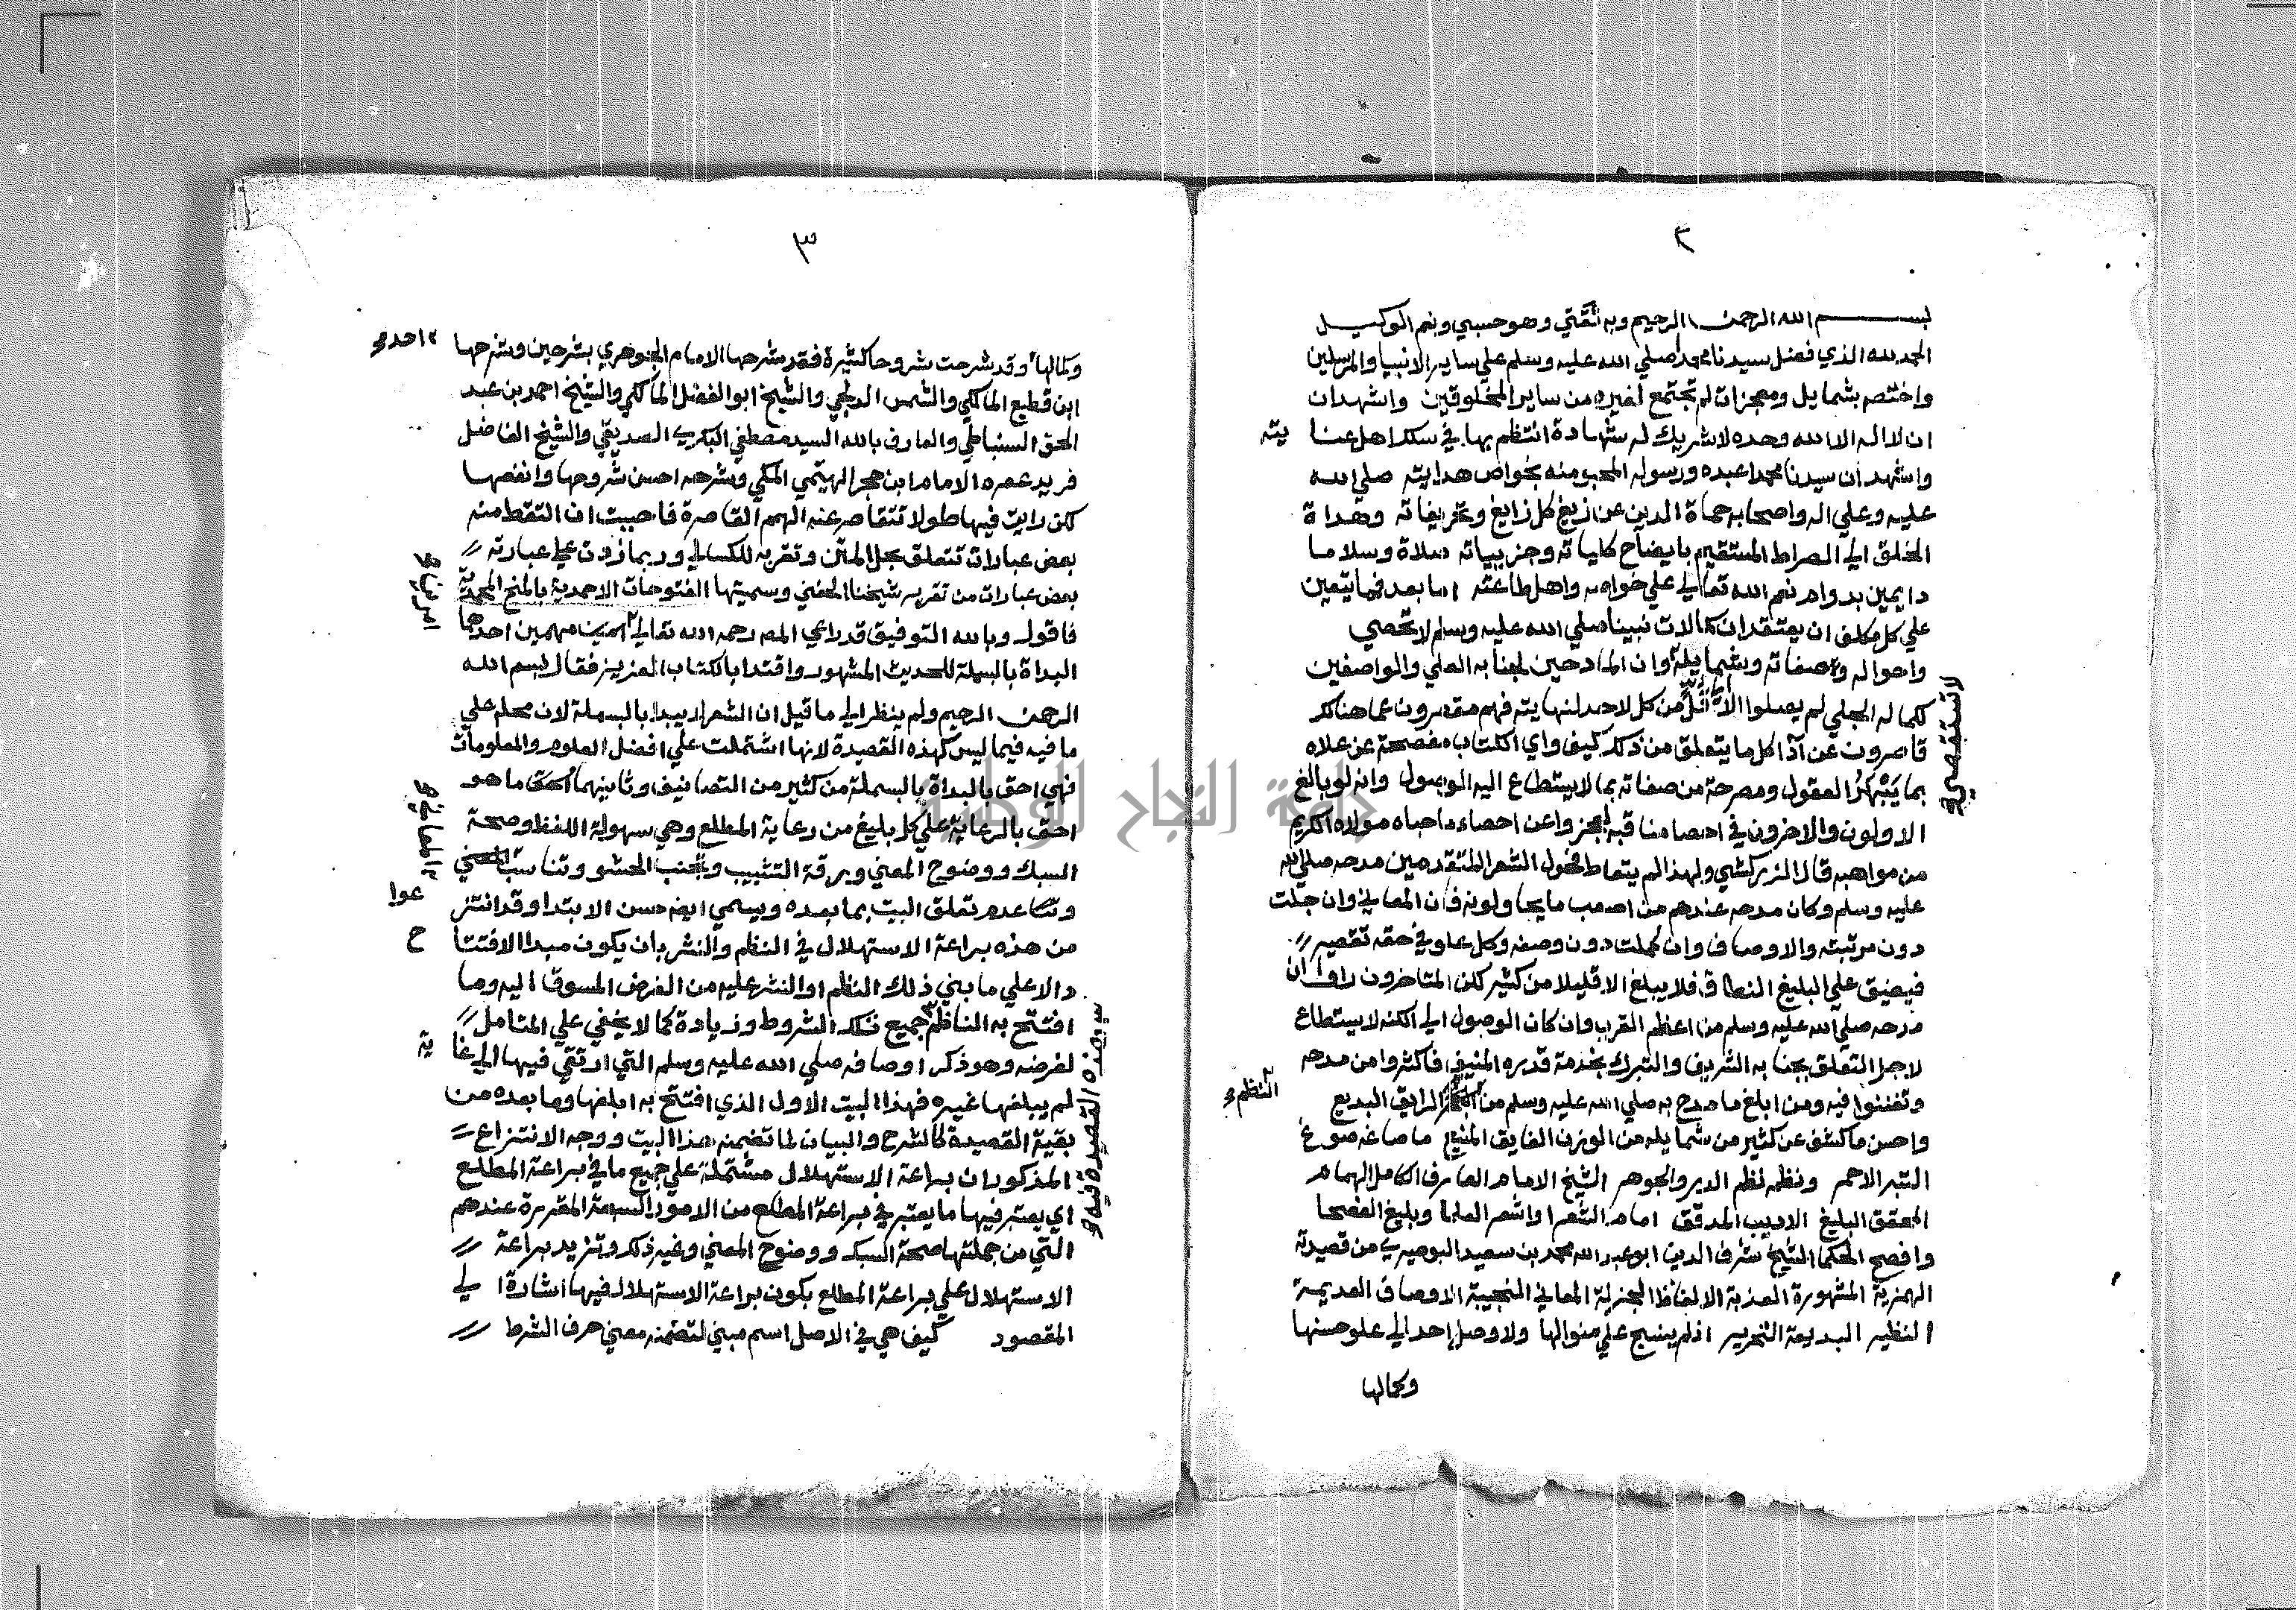 ٢
بســـــم الله الرحمن الرحيم وبه ثقتي وهو حسبي ونعم الوكيــل
الحمد لله الذي فضل سيدنا محمد صلي الله عليه وسلم علي ساير الانبيا والمرسلين
واختصه بشمايل ومعجزات لم تجتمع لغيره من ساير المخلوقين واشهد ان
ان لا اله الا الله وحده لا شريك له شهادة انتظم بها في سلك اهل عنا يته
واشهد ان سيدنا محمدا عبده ورسوله المحبو منه بخواص هدايته صلي الله
عليه وعلي اله واصحابه حماة الدين عن زيغ كل زايغ وتحريفاته وهداة
الخلق الي الصراط المستقيم بايضاح كلياته وجزيياته صلاة وسلاما
دايمين بدوام نعم الله تعالي علي خواصه واهل طاعته اما بعد فمما يتعين
علي كل مكلف ان يعتقد ان كمالات نبينا صلي الله عليه وسلم لا تحصي
واحواله وصفاته وشمايله لا تستقصي وان المادحين لجنابه العلي والواصفين
لكماله الجلي لم يصلوا الا الي قل من كل لا حد لنهايته فهم مقصرون عما هنالك
قاصرون عن اداء كل ما يتعلق من ذلك كيف واي الكتاب مفصحة عن علاه
بما يبهر العقول ومصرحة من صفاته بما لا يستطاع اليه الوصول وانه لو بالغ
الاولون والاخرون في احصا مناقبه لعجزوا عن احصاء ما حباه مولاه الكريم
من مواهبه قال الزركشي ولهذا لم يتعاط فحول الشعرا المتقدمين مدحه صلي الله
عليه وسلم وكان مدحه عندهم من اصعب ما يحاولونه فان المعاني وان جلت
دون مرتبته والاوصاف وان كملت دون وصفه وكل علو في حقه تقصير
فيضيق علي البليغ النطاق فلا يبلغ الا قليلا من كثير لكن المتاخرون راوا ان
مدحه صلي الله عليه وسلم من اعظم القرب وان كان الوصول الي اكنه لا يستطاع
لاجل التعلق بجنابه الشريف والتبرك بخدمة قدره المنيف فاكثروا من مدحه
وتفننوا فيه ومن ابلغ ما مدح به صلي الله عليه وسلم من النظم الرايق البديع
واحسن ما كشف عن كثير من شمايله من الوزن الفايق المنيع ما صاغه صوغ
التبر الاحمر ونظمه نظم الدر والجوهر الشيخ الامام العارف الكامل الهمام
المحقق البليغ الاديب المدقق امام الشعرا واشعر العلما وبليغ الفصحا
وافصح الحكما الشيخ شرف الدين ابو عبد الله محمد بن سعيد البوصيري من قصيدته
الهمزية المشهورة العذبة الالفاظ الجزلة المعاني النجيبة الاوصاف العديمة
النظير البديعة التحرير اذ لم ينسج علي منوالها ولا وصل احد الي علو حسنها
وكمالها
٣
وكمالها وقد شرحت شروحا كثيرة فقد شرحها الامام الجوهري بشرحين وشرحها
ابن قطيع المالكي والشمس الدلجي والشيخ ابو الفضل المالكي والشيخ احمد بن عبد
الحق السنباطي والعارف بالله السيد مصطفي البكري الصديقي والشيخ الفاضل
فريد عصره الامام ابن حجر الهيتمي المكي وشرحه احسن شروحها وانفعها
لكن رايت فيها طولا تتقاصر عنه الهمم القاصرة فاحببت ان التقط منه
بعض عبارات تتعلق بحل المتن وتقربه للكسالي وربما زدت علي عبارته
بعض عبارات من تقرير شيخنا الحفني وسميتها الفتوحات الاحمدية بالمنح المحمدية
فاقول وبالله التوفيق قد راعي المص رحمه الله تعالي امرين مهمين احدهما
البداة بالبسملة للحديث المشهور واقتدا بالكتاب العزيز فقال بسم الله
الرحمن الرحيم ولم ينظر الي ما قيل ان الشعر لا يبدا بالبسملة لان محله علي
ما فيه فيما ليس كهذه القصيدة لانها اشتملت علي افضل العلوم والمعلومات
فهي احق بالبداة بالبسملة من كثير من التصانيف وثانيهما ما هو
احق بالرعاية علي كل بليغ من رعاية المطلع وهي سهولة اللفظ وصحة
السبك ووضوح المعني ورقة التشبيب وتجنب الحشو وتناسب المعاني
وعدم تعلق البيت بما بعده ويسمي ايضا حسن الابتدا وقد انتزعوا
من هذه براعة الاستهلال في النظم والنثر بان يكون مبدا الافتتاح
دالا علي ما بني ذلك النظم او النثر عليه من الغرض المسوق اليه وما
افتتح به الناظم هذه القصيدة فيه جميع تلك الشروط وزيادة كما لا يخفي علي المتامل
لغرضه وهو ذكر اوصافه صلي الله عليه وسلم التي ارتقي فيها الي غاية
لم يبلغها غيره فهذا البيت الاول الذي افتتح به ابلغها وما بعده من
بقية القصيدة كالشرح والبيان لما تضمنه هذا البيت ووجه الانتزاع
المذكور ان براعة الاستهلال مشتملة علي جميع ما في براعة المطلع
اي يعتبر فيها ما يعتبر في براعة المطلع من الامور السبعة المقررة عندهم
التي من جملتها صحة السبك ووضوح المعني وغير ذلك وتزيد براعة
الاستهلال علي براعة المطلع بكون براعة الاستهلال فيها اشارة الي
المقصود كيف هي في الاصل اسم مبني لتضمنه معني حرف الشرط
جامعة النجاح الوطنية